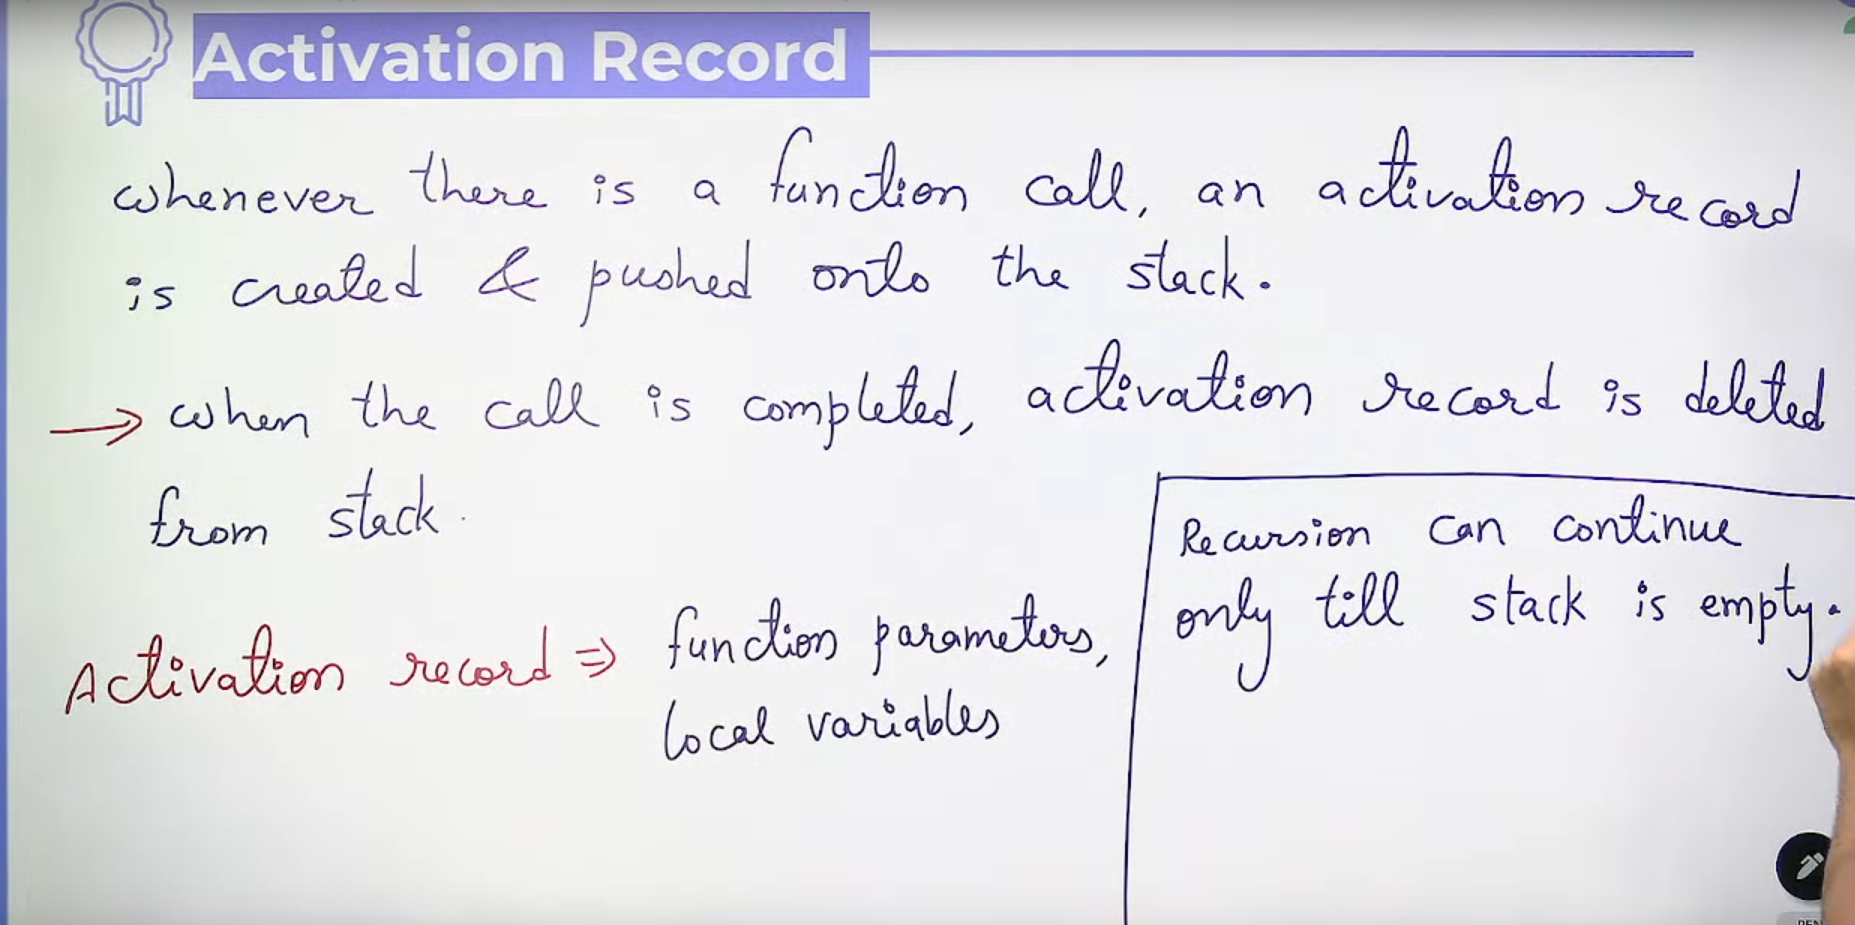 Activation Record
whenever there is a function call, an activation record
is created & pushed onto the stack.
→ when the call is completed, activation record is deleted
from stack.
Activation record ⇒ function parameters,
local variables
Recursion can continue
only till stack is empty.
PEN